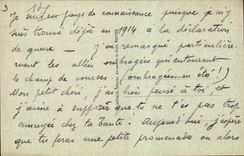 3
Je suis en pays de connaissance puisque je m'y
suis trouvé déjà en 1914 à la déclaration
de guerre — j'ai remarqué particulière-
ment les allées ombragées qui entourent
le champ de courses. (ombragées en été!)
Mon petit chéri, j'ai bien pensé à toi, et
j'aime à supposer que tu ne t'es pas trop
ennuyée chez ta tante. Aujourd'hui j'espère
que tu feras une petite promenade ou alors